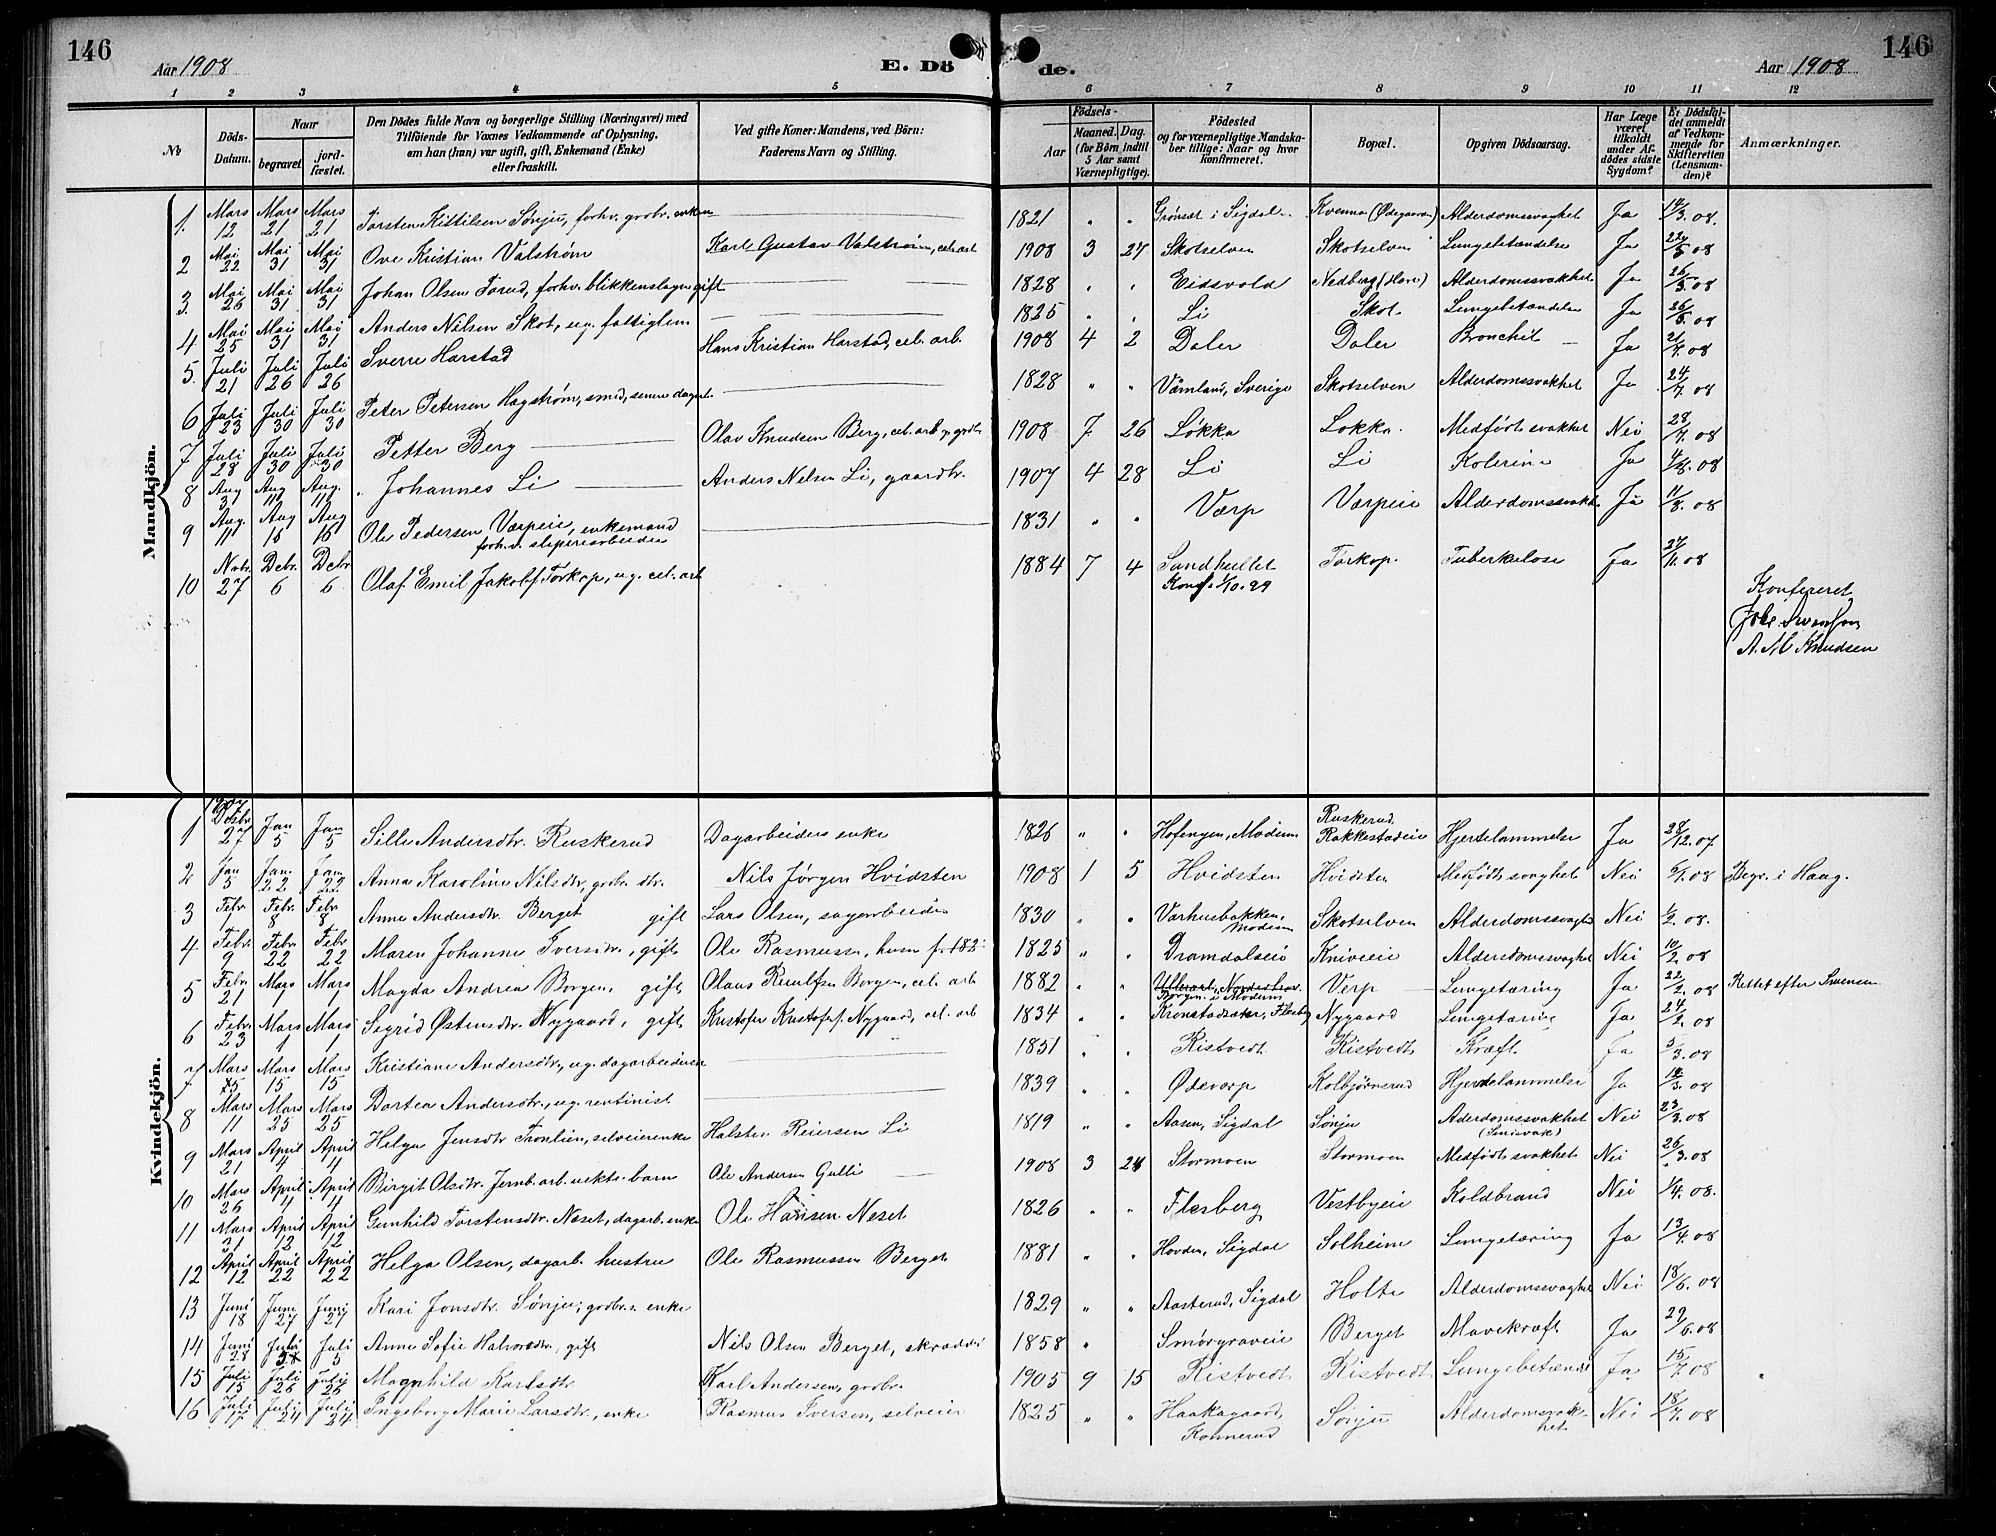 146
Aar 1908
E. Dö
1 2 3 4 5
№
Döds-
Datum.
Naar
begravet
jord-
fæstet.
Den Dödes fulde Navn og borgerlige Stilling (Næringsvei) med
Tilföiende for Voxnes Vedkommende af Oplysning,
om han (hun) var ugift, gift, Enkemand (Enke)
eller fraskilt.
Ved gifte Koner: Mandens, ved Börn:
Faderens Navn og Stilling.
Mandkjön.
1. Mars 12 Mars 21 Mars 21 Torsten Kittilsen Sønju, forhv. grdbr. enkem
2 Mai 22 Mai 31 Mai 31 Ove Kristian Valstrøm Karl Gustav Valstrøm, cel. arb
3. Mai 26 Mai 31 Mai 31 Johan Olsen Torud, forhv. blikkenslager gift
4 Mai 25 Mai 31 Mai 31 Anders Nilsen Skot, ug. fattiglem
5. Juli 21 Juli 26 Juli 26 Sverre Harstad Hans Kristian Harstad, cel. arb.
6 Juli 23 Juli 30 Juli 30 Peter Petersen Hagstrøm, smid, senere dagarb.
7 Juli 28 Juli 30 Juli 30 Petter Berg Olav Knudsen Berg, cel. arb.
8 Aug 3 Aug 11 Aug. 11 Johannes Li Anders Nelsen Li, gaardbr.
9 Aug. 11 Aug 16 Aug 16 Ole Pedersen Værpeie, enkemand
forh.v. sliperiarbeider
10 Nvbr. 27 Dcbr. 6 Dcbr 6 Olaf Emil Jakobs. Torkop, ug. cel. arb
Kvindekjön.
1 1907 Dcbr 27 Jan 5 Jan 5 Sille Andersdtr. Ruskerud Dagarbeiders enke
2 Jan 5 Jan. 22 Jan. 22 Anna Karoline Nilsdtr, grdbr. dtr. Nils Jørgen Hvidsten
3 Febr 1 Febr. 8 Febr. 8 Anne Andersdtr. Berget gift Lars Olsen, sagarbeider
4 Febr. 9 Febr. 22 Febr 22 Maren Johanne Iversdtr., gift Ole Rasmussen, husm
5 Febr. 21 Mars 1 Mars 1 Magda Andrea Borgen, gift Olaus Ruulfsen Borgen, cel. arb
6 Febr. 23 Mars 1 Mars 1 Sigrid Østensdtr. Nygaard, gift Kristofer Kristofers. Nygaard, cel. arb
7 Mars 5 Mars 15 Mars 15 Kristiane Andersdtr, ug. dagarbeiderske
8 Mars 11 Mars 25 Mars 25 Dortea Andersdtr., ug. rentinist
9 Mars 21 April 4 April 4 Helga Jensdtr Tronlien, selveierenke Halsten Reiersen Li
10 Mars 26 April 4 April 4 Birgit Olsdtr. Jernb. arb. uekte barn Ole Andersen Gulli
11 Mars 31 April 12 April 12 Gunhild Torstensdtr. Neset, dagarb. enke Ole Hansen Neset
12 April 12 April 22 April 22 Helga Olsen, dagarb. hustru Ole Rasmussen Berget
13 Juni 18 Juni 27 Juni 27 Kari Jonsdtr. Sønju, grdbr.s enke
14 Juni 28 Juli 5 Juli 5 Anne Sofie Halvorsdtr., gift Nils Olsen Berget, skrædder
15 Juli 15 Juli 26 Juli 26 Magnhild Karlsdtr Karl Andersen, grdbr.
16 Juli 17 Juli 24 Juli 24 Ingeborg Marie Larsdtr., enke Rasmus Iversen, selveier
146
de.
Aar 1908
6 7 8 9 10 11 12
Födsels-
Aar
Maaned. Dag.
(for Börn indtil
5 Aar samt
Værnepligtige).
Födested
og for værnepligtige Mandska-
ber tillige: Naar og hvor
konfirmeret.
Bopæl.
Opgiven Dödsaarsag.
Har Læge
været
tilkaldt
under Af-
dödes sidste
Sygdom?
Er Dödsfal-
det anmeldt
af Vedkom-
mende for
Skifteretten
(Lensman-
den)?
Anmærkninger.
1821 " " Grønsæt i Sigdal Kvenna (Ødegaarden) Alderdomssvaghet Ja 14/3. 08.
1908 3 24 Skotselven Skotselven Lungebetændelse Ja 22/5 08
1828 " " Eidsvold Nedberg (Hore) Alderdomssvakhet Ja 26/5. 08
1825 " " Li Skot. Lungebetændelse Ja 26/5. 08
1908 4 2 Daler Daler Bronchit Ja 21/7. 08
1828 " " Värmland, Sverige Skotselven Alderdomssvakhet Ja 24/7. 08
1908 7. 26 Løkka Løkka. Medfødt svakhet Nei 28/7. 08
1907 4 28 Li Li Kolerine Ja 4/8. 08
1831 " " Værp Værpeie Alderdomssvakh. Ja 11/8. 08
1884 7 4 Sandhullet Torkop. Tuberkulose Ja 27/11. 08
Konf. 1/10. 99
Konfereret
A. M Knudsen
1826 " " Hofengen, Modum Ruskerud Rakkestadeie Hjertelammelse Ja 28/12. 07
1908 1 5 Hvidsten Hvidsten Medfødt svaghet Nei 6/1. 08 Begr. i Haug.
1830 " " Varhusbakken, Modum Skotselven Alderdomssvaghet Nei 1/2. 08.
1825 " " Dramdalseie Kniveeie Alderdomssvaghet Nei 10/2. 08
1882 " " Borgen i Modum Verp Lungetæring Ja 22/2. 08 Rettet efter Svensen
1834 " " Kronstadsæter, Flesbg Nygaard Lungetæring Ja 24/2. 08
1851 " " Ristvedt Ristvedt Kræft. Ja 5/3. 08
1839 " " Ødevarp Kolbjørnsrud Hjertelammelse Ja 12/3. 08
1819 " " Aasen, Sigdal Sønju Aderdomssvakhet Nei 23/3. 08
(Sindssvak)
1908 3 24 Stormoen Stormoen Medfødt svakhet Nei 26/3. 08
1826 " " Flesberg Vestbyeie Koldbrand Nei 1/4. 08.
1881 " " Hovden, Sigdal Solheim Lungetæring Ja 13/4. 08
1829 " " Aasterud, Sigdal Holte Alderdomssvaghet Nei 18/6. 08
1858 " Smørgraveie Berget Mavekræft Ja 29/6. 08
1905 9 15 Ristvedt Ristvedt Lungebetændelse Ja 15/7. 08
1825 " " Haakagaard, Konnerud Sønju Alderdomssvak-
het Nei 18/7. 08